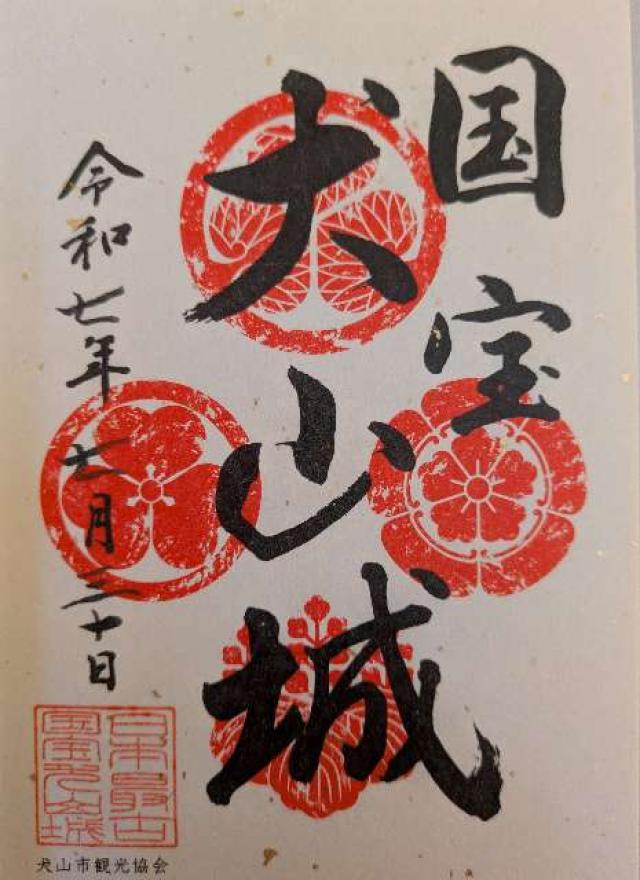 国宝
犬山城
令和七年七月三十日
日本最古
国宝犬山城
犬山市観光協会